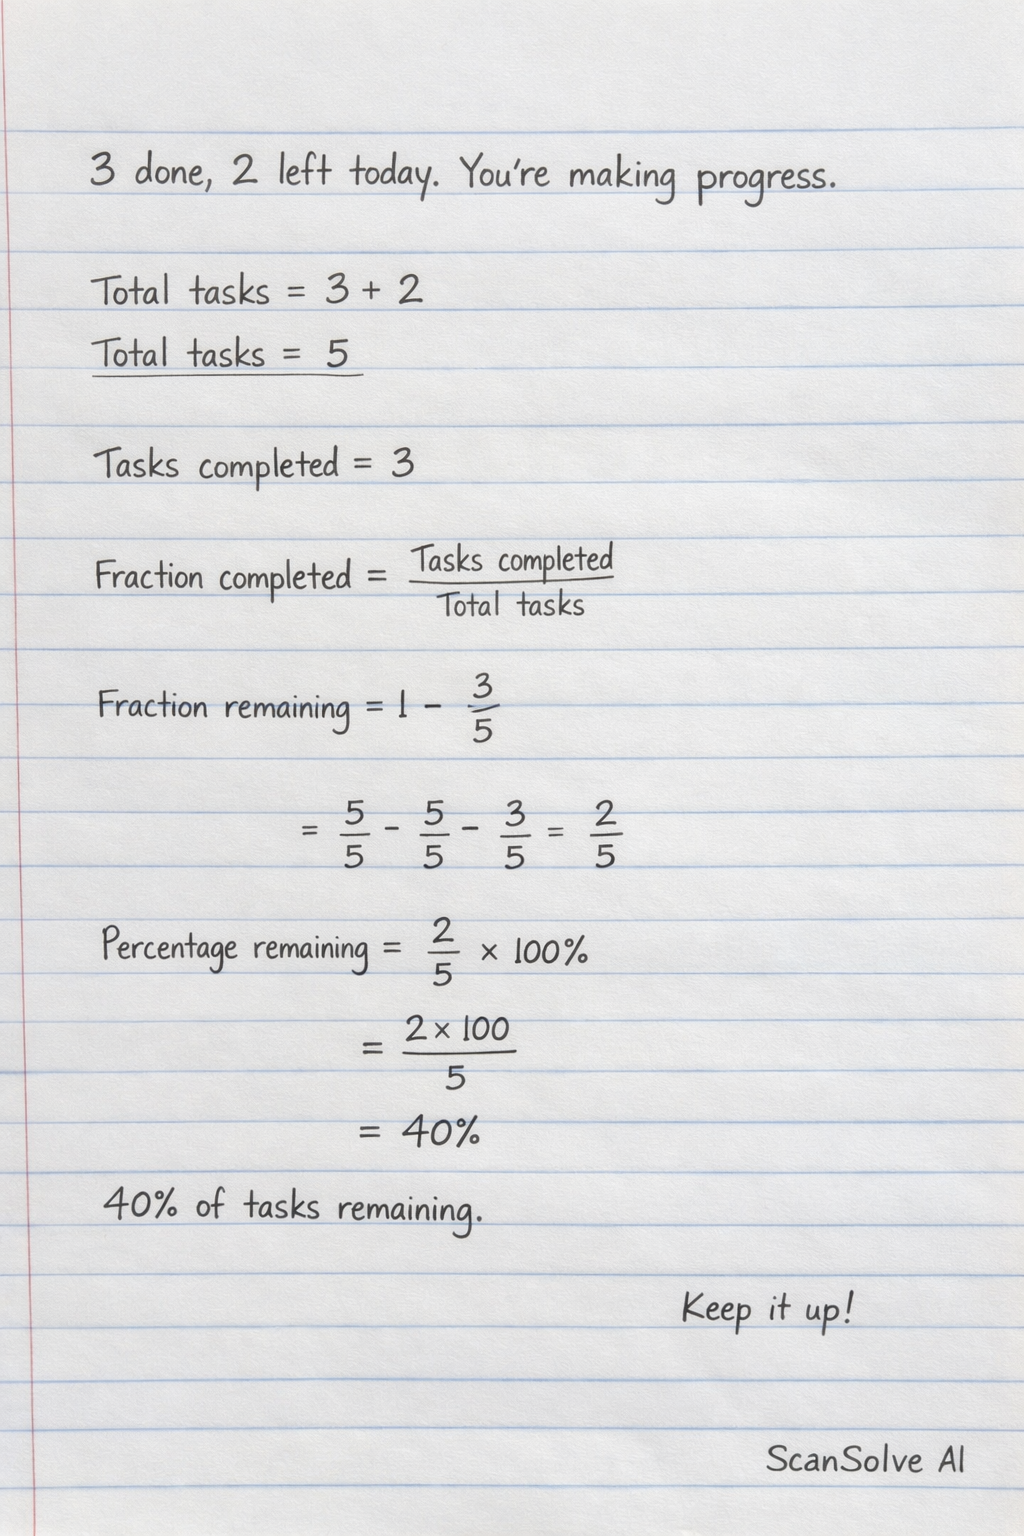 3 done, 2 left today. You're making progress.
Total tasks = 3 + 2
Total tasks = 5
Tasks completed = 3
Fraction completed = Tasks completed / Total tasks
Fraction remaining = 1 - 3/5
= 5/5 - 5/5 - 3/5 = 2/5
Percentage remaining = 2/5 × 100%
= 2 × 100 / 5
= 40%
40% of tasks remaining.
Keep it up!
ScanSolve AI